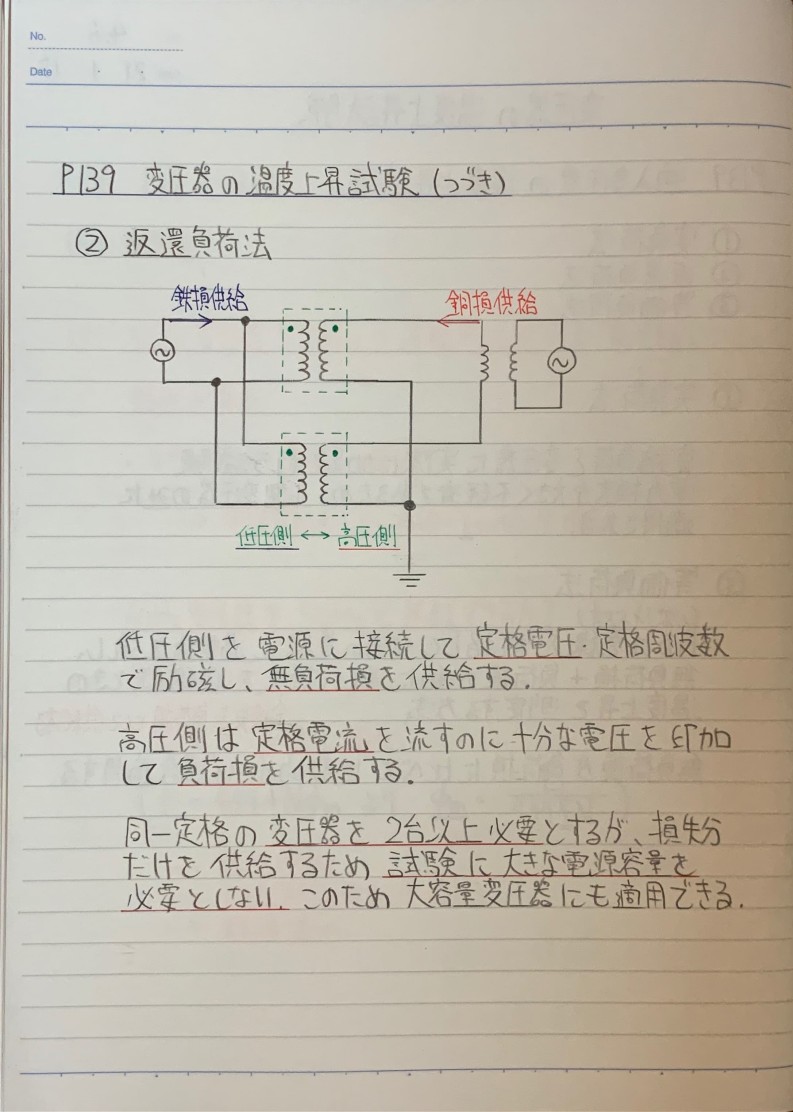 No.
Date
P139 変圧器の温度上昇試験 (つづき)
② 返還負荷法
鉄損供給
銅損供給
低圧側 ↔ 高圧側
低圧側を電源に接続して定格電圧・定格周波数
で励磁し、無負荷損を供給する.
高圧側は定格電流を流すのに十分な電圧を印加
して負荷損を供給する.
同一定格の変圧器を2台以上必要とするが、損失分
だけを供給するため試験に大きな電源容量を
必要としない. このため大容量変圧器にも適用できる.